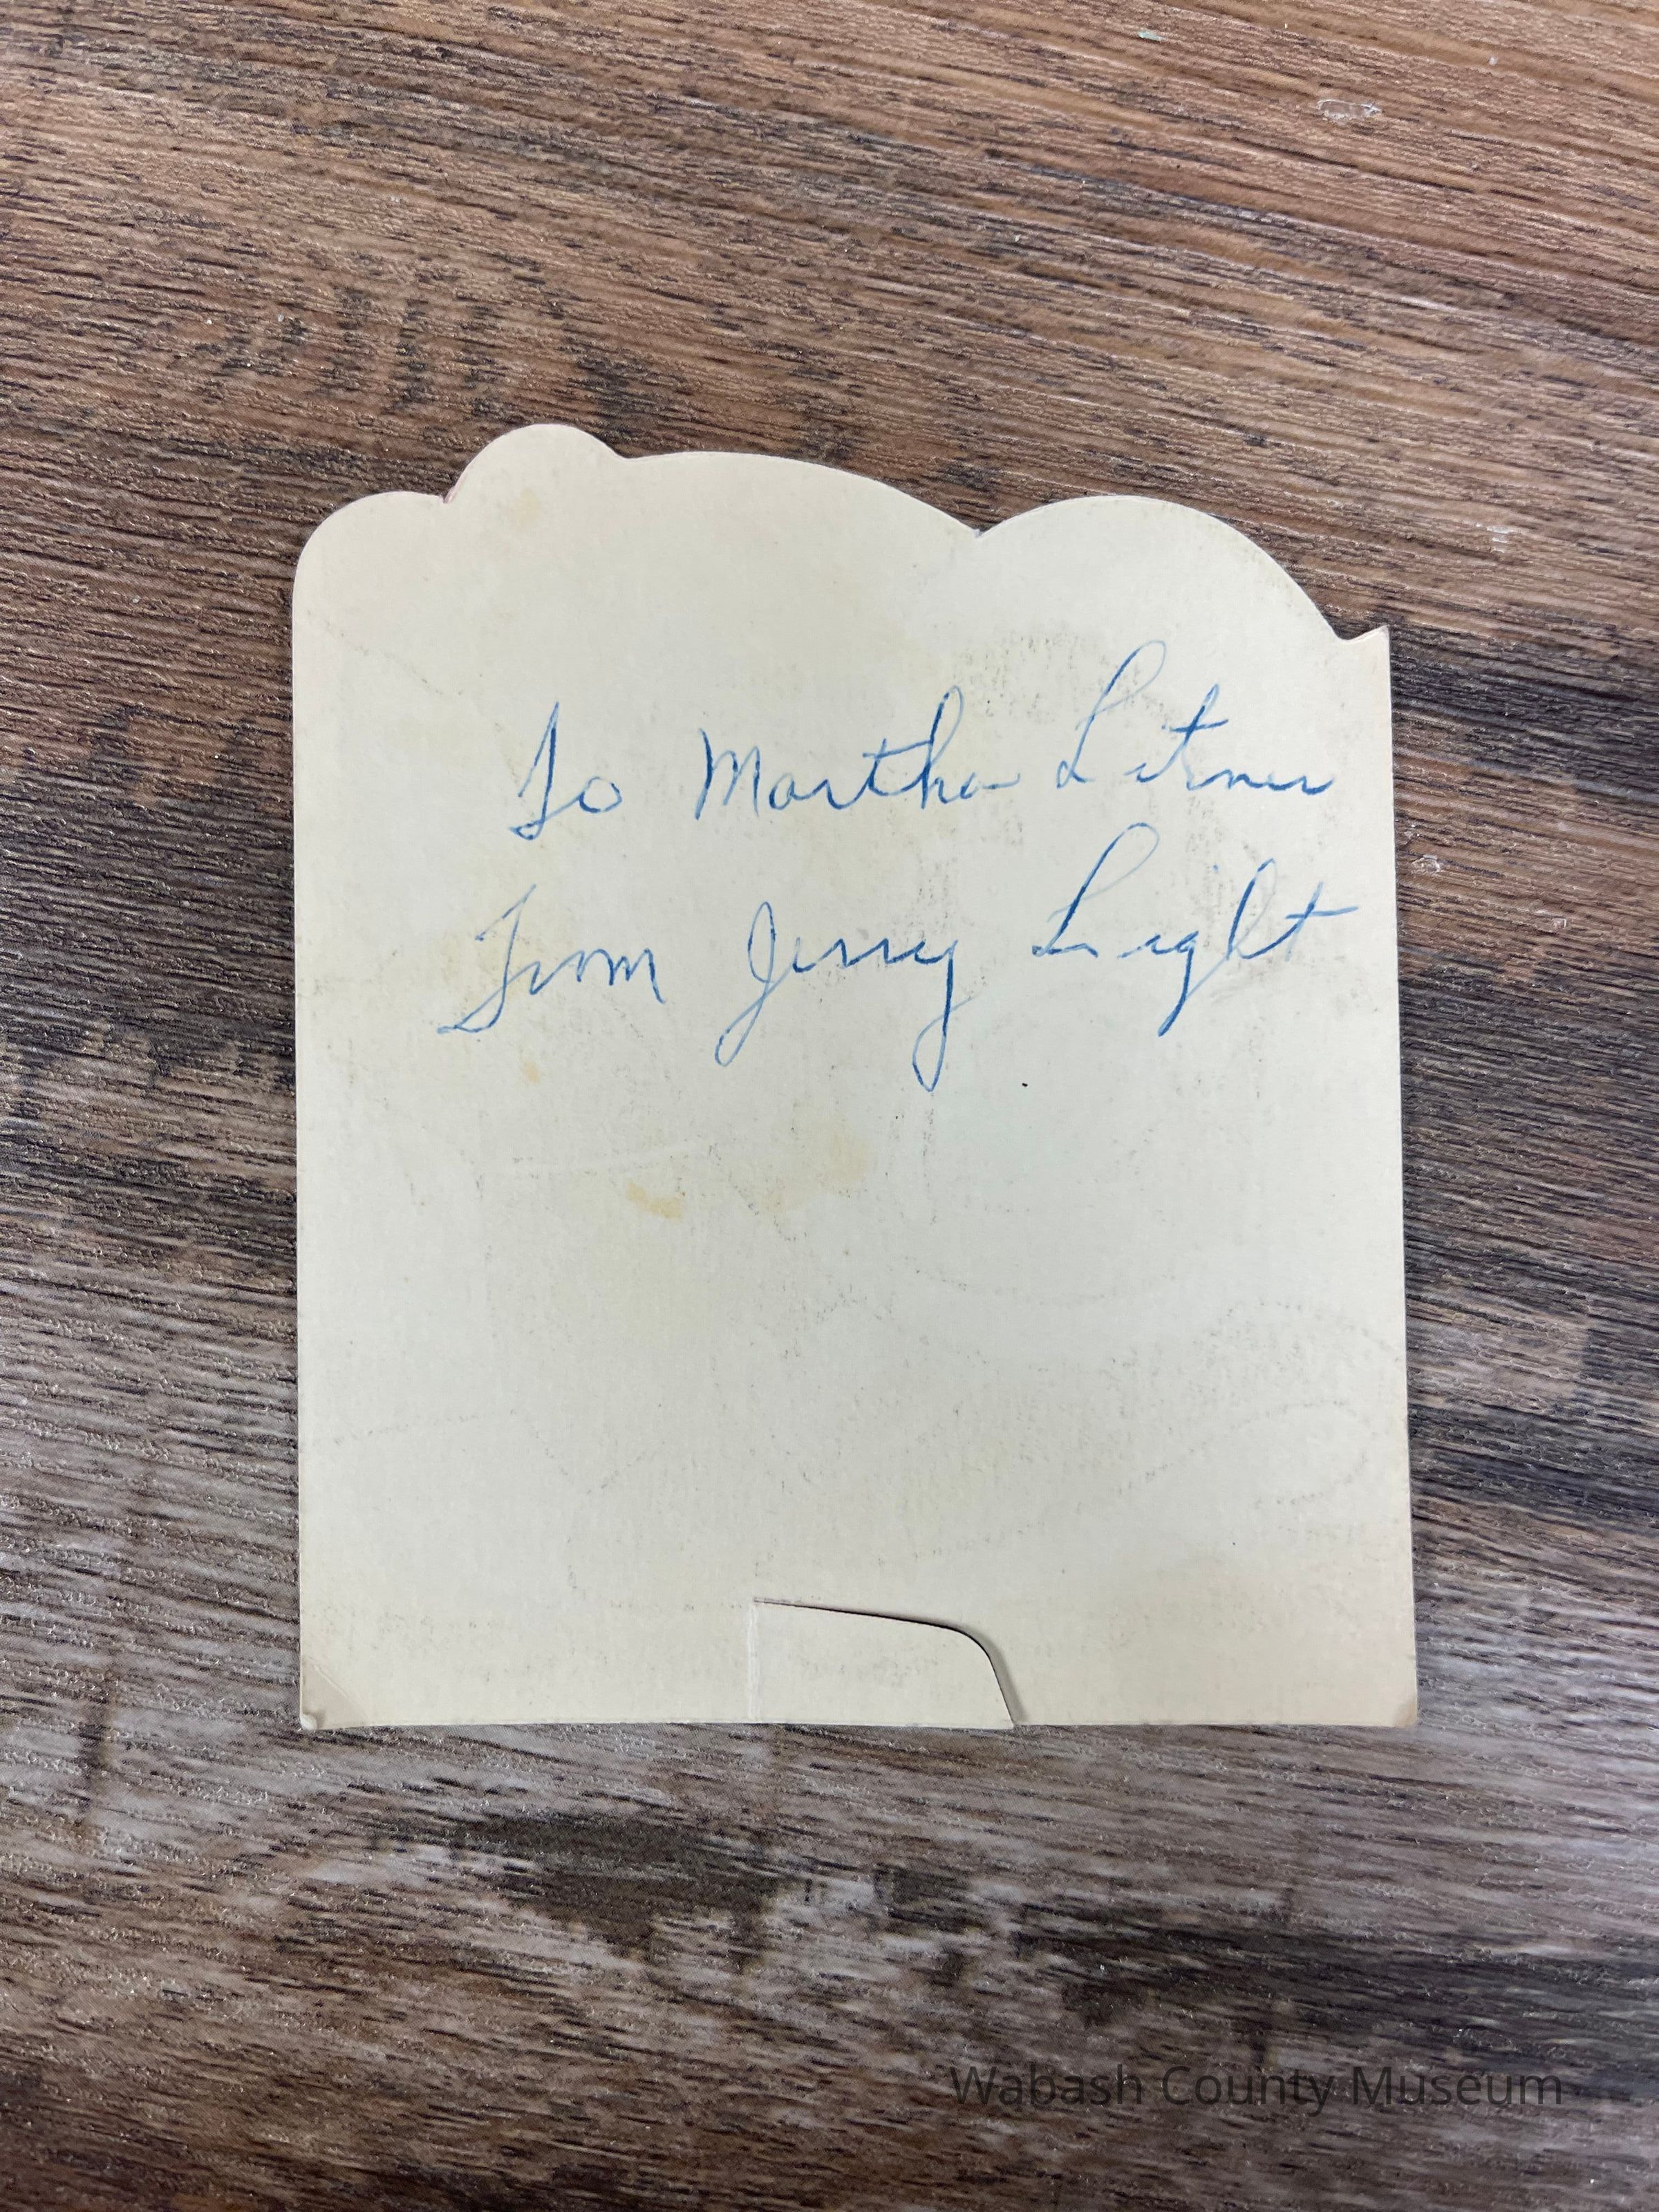 To Martha Litner
From Jerry Light
Wabash County Museum